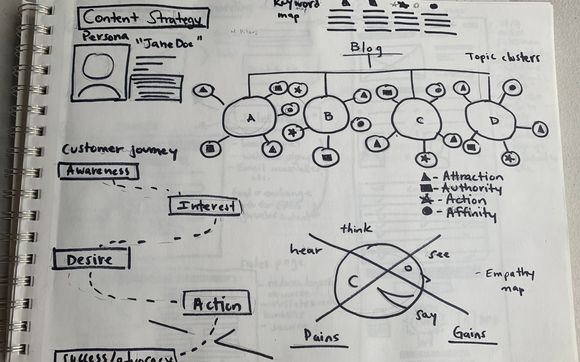 Content Strategy
Keyword map
Persona
"Jane Doe"
Blog
Topic clusters
A
B
C
D
Customer journey
Awareness
Interest
Desire
Action
Success/advocacy
- Attraction
- Authority
- Action
- Affinity
think
hear
see
say
- Empathy map
Pains
Gains